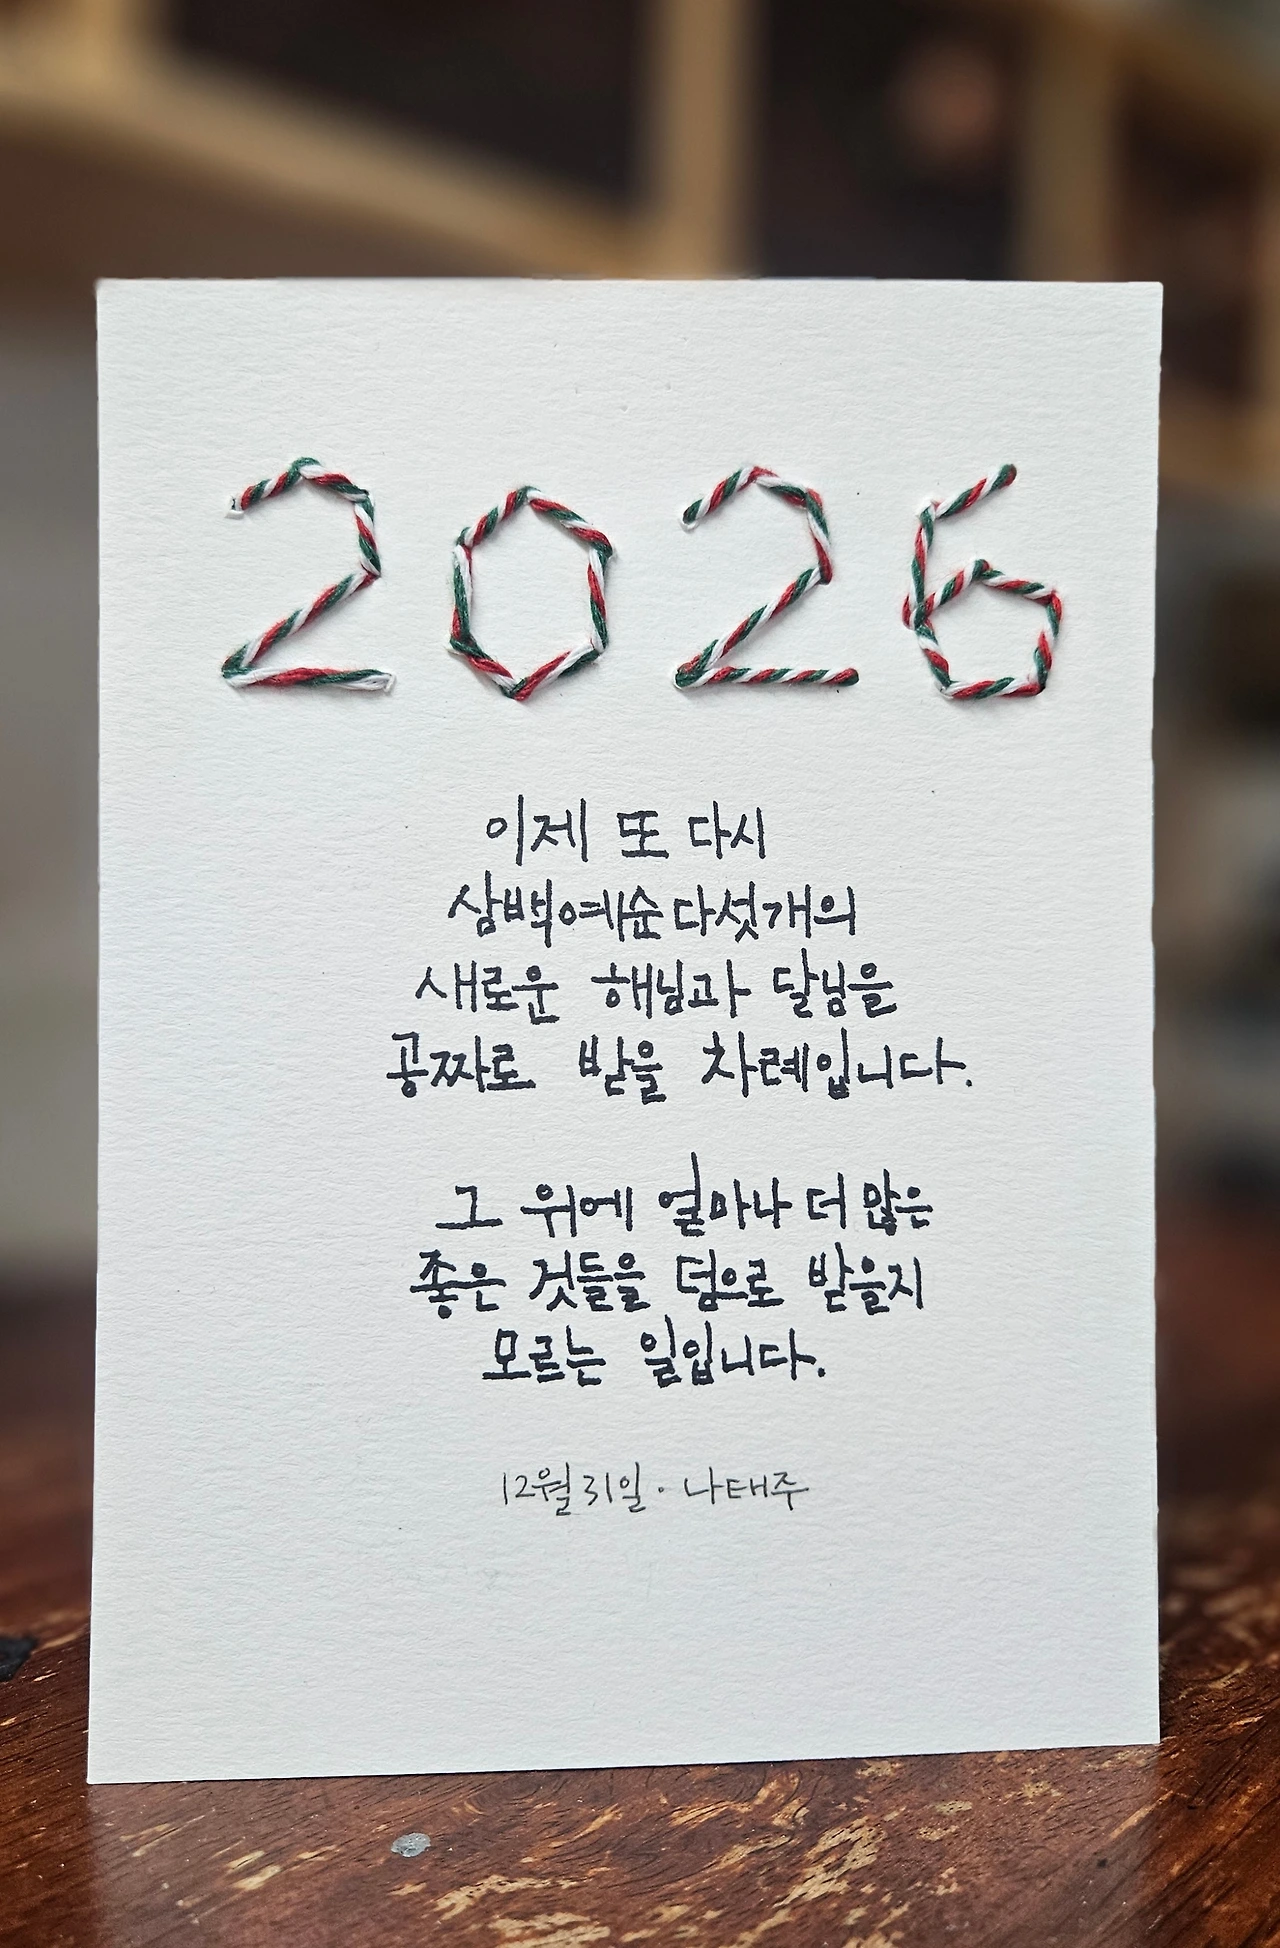 2026
이제 또 다시
삼백예순다섯개의
새로운 해님과 달님을
공짜로 받을 차례입니다.
그 위에 얼마나 더 많은
좋은 것들을 덤으로 받을지
모르는 일입니다.
12월 31일 · 나태주